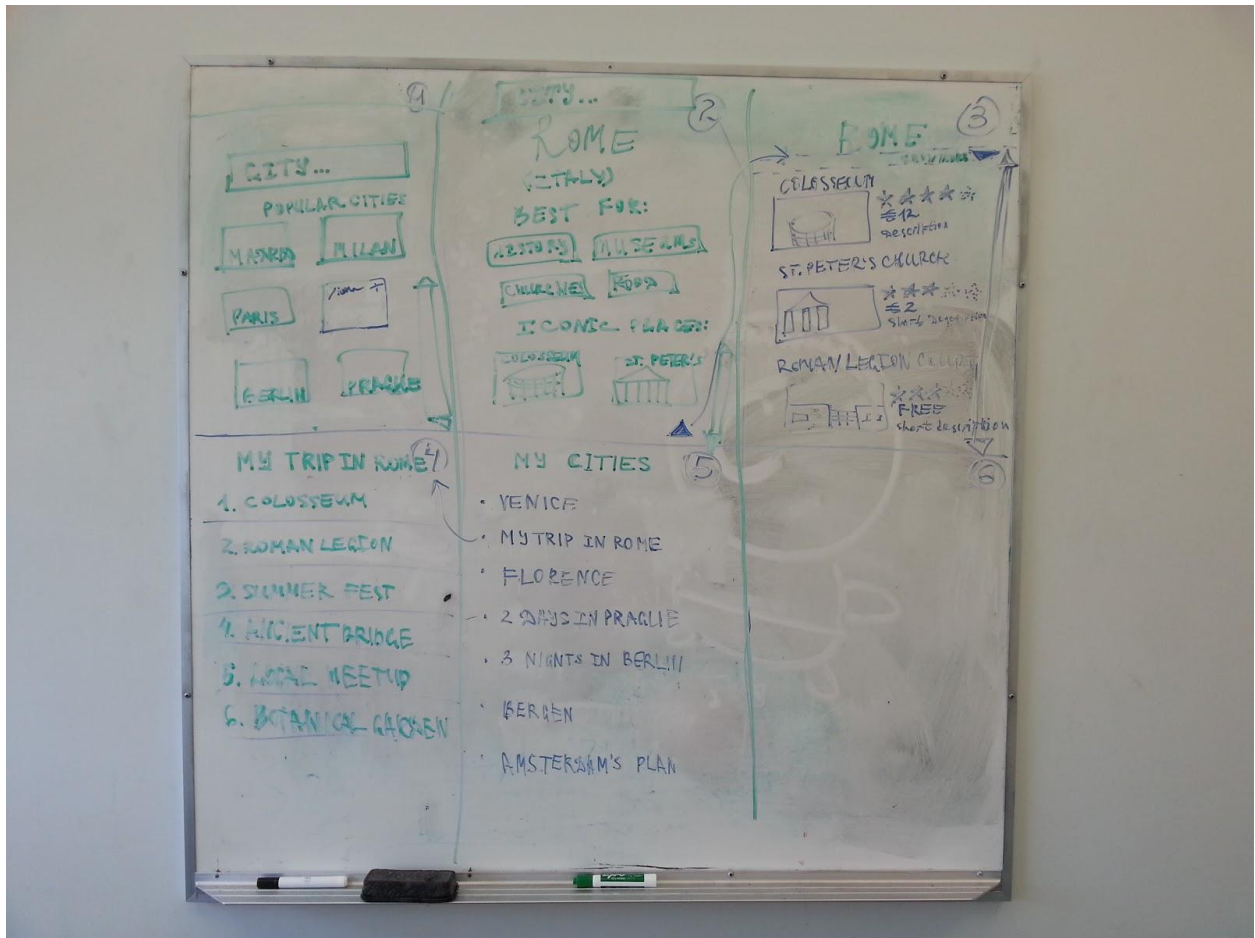 1
CITY...
POPULAR CITIES
MADRID
MILAN
PARIS
BERLIN
PRAGUE
2
CITY...
ROME
(ITALY)
BEST FOR:
HISTORY
MUSEUMS
CHURCHES
FOOD
ICONIC PLACES:
COLOSSEUM
ST. PETER'S
3
ROME
COLOSSEUM
€12
Description
ST. PETER'S CHURCH
€2
Short
ROMAN LEGION
FREE
short description
4
MY TRIP IN ROME
1. COLOSSEUM
2. ROMAN LEGION
3. SUMMER FEST
4. ANCIENT BRIDGE
5. LOCAL MEETUP
6. BOTANICAL GARDEN
5
MY CITIES
· VENICE
· MY TRIP IN ROME
· FLORENCE
· 2 DAYS IN PRAGUE
· 3 NIGHTS IN BERLIN
· BERGEN
· AMSTERDAM'S PLAN
6